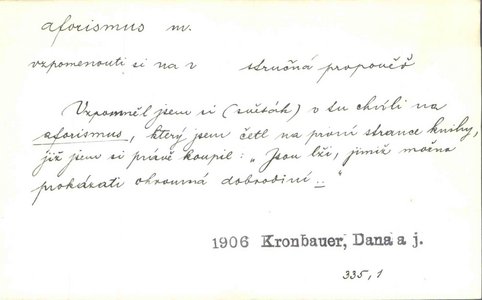 aforismus m.
vzpomenouti si na v stručná propověď
Vzpomněl jsem si (světák) v tu chvíli na
aforismus, který jsem četl na první strance knihy,
již jsem si právě koupil: „Jsou lži, jimiž možno
prokázati ohromná dobrodiní .."
1906 Kronbauer, Dana a j.
335,1